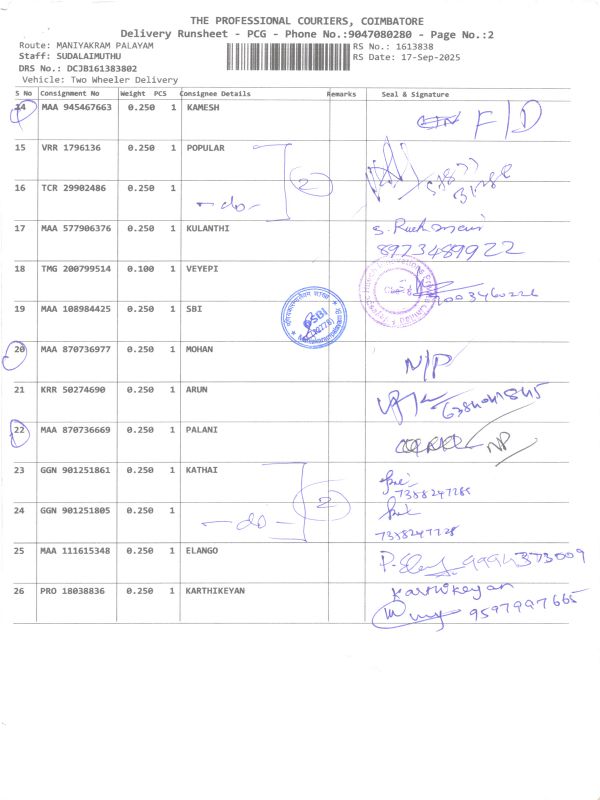 THE PROFESSIONAL COURIERS, COIMBATORE
Delivery Runsheet - PCG - Phone No.:9047080280 - Page No.:2
Route: MANIYAKRAM PALAYAM RS No.: 1613838
Staff: SUDALAIMUTHU RS Date: 17-Sep-2025
DRS No.: DCJB161383802
Vehicle: Two Wheeler Delivery
S No Consignment No Weight PCS Consignee Details Remarks Seal & Signature
14 MAA 945467663 0.250 1 KAMESH F/D
15 VRR 1796136 0.250 1 POPULAR 2
16 TCR 29902486 0.250 1 -do-
17 MAA 577906376 0.250 1 KULANTHI
8973489922
18 TMG 200799514 0.100 1 VEYEPI
19 MAA 108984425 0.250 1 SBI SBI
20 MAA 870736977 0.250 1 MOHAN N/P
21 KRR 50274690 0.250 1 ARUN
22 MAA 870736669 0.250 1 PALANI NP
23 GGN 901251861 0.250 1 KATHAI 2
24 GGN 901251805 0.250 1 -do-
25 MAA 111615348 0.250 1 ELANGO 9994373009
26 PRO 18038836 0.250 1 KARTHIKEYAN Karthikeyan
9597997665